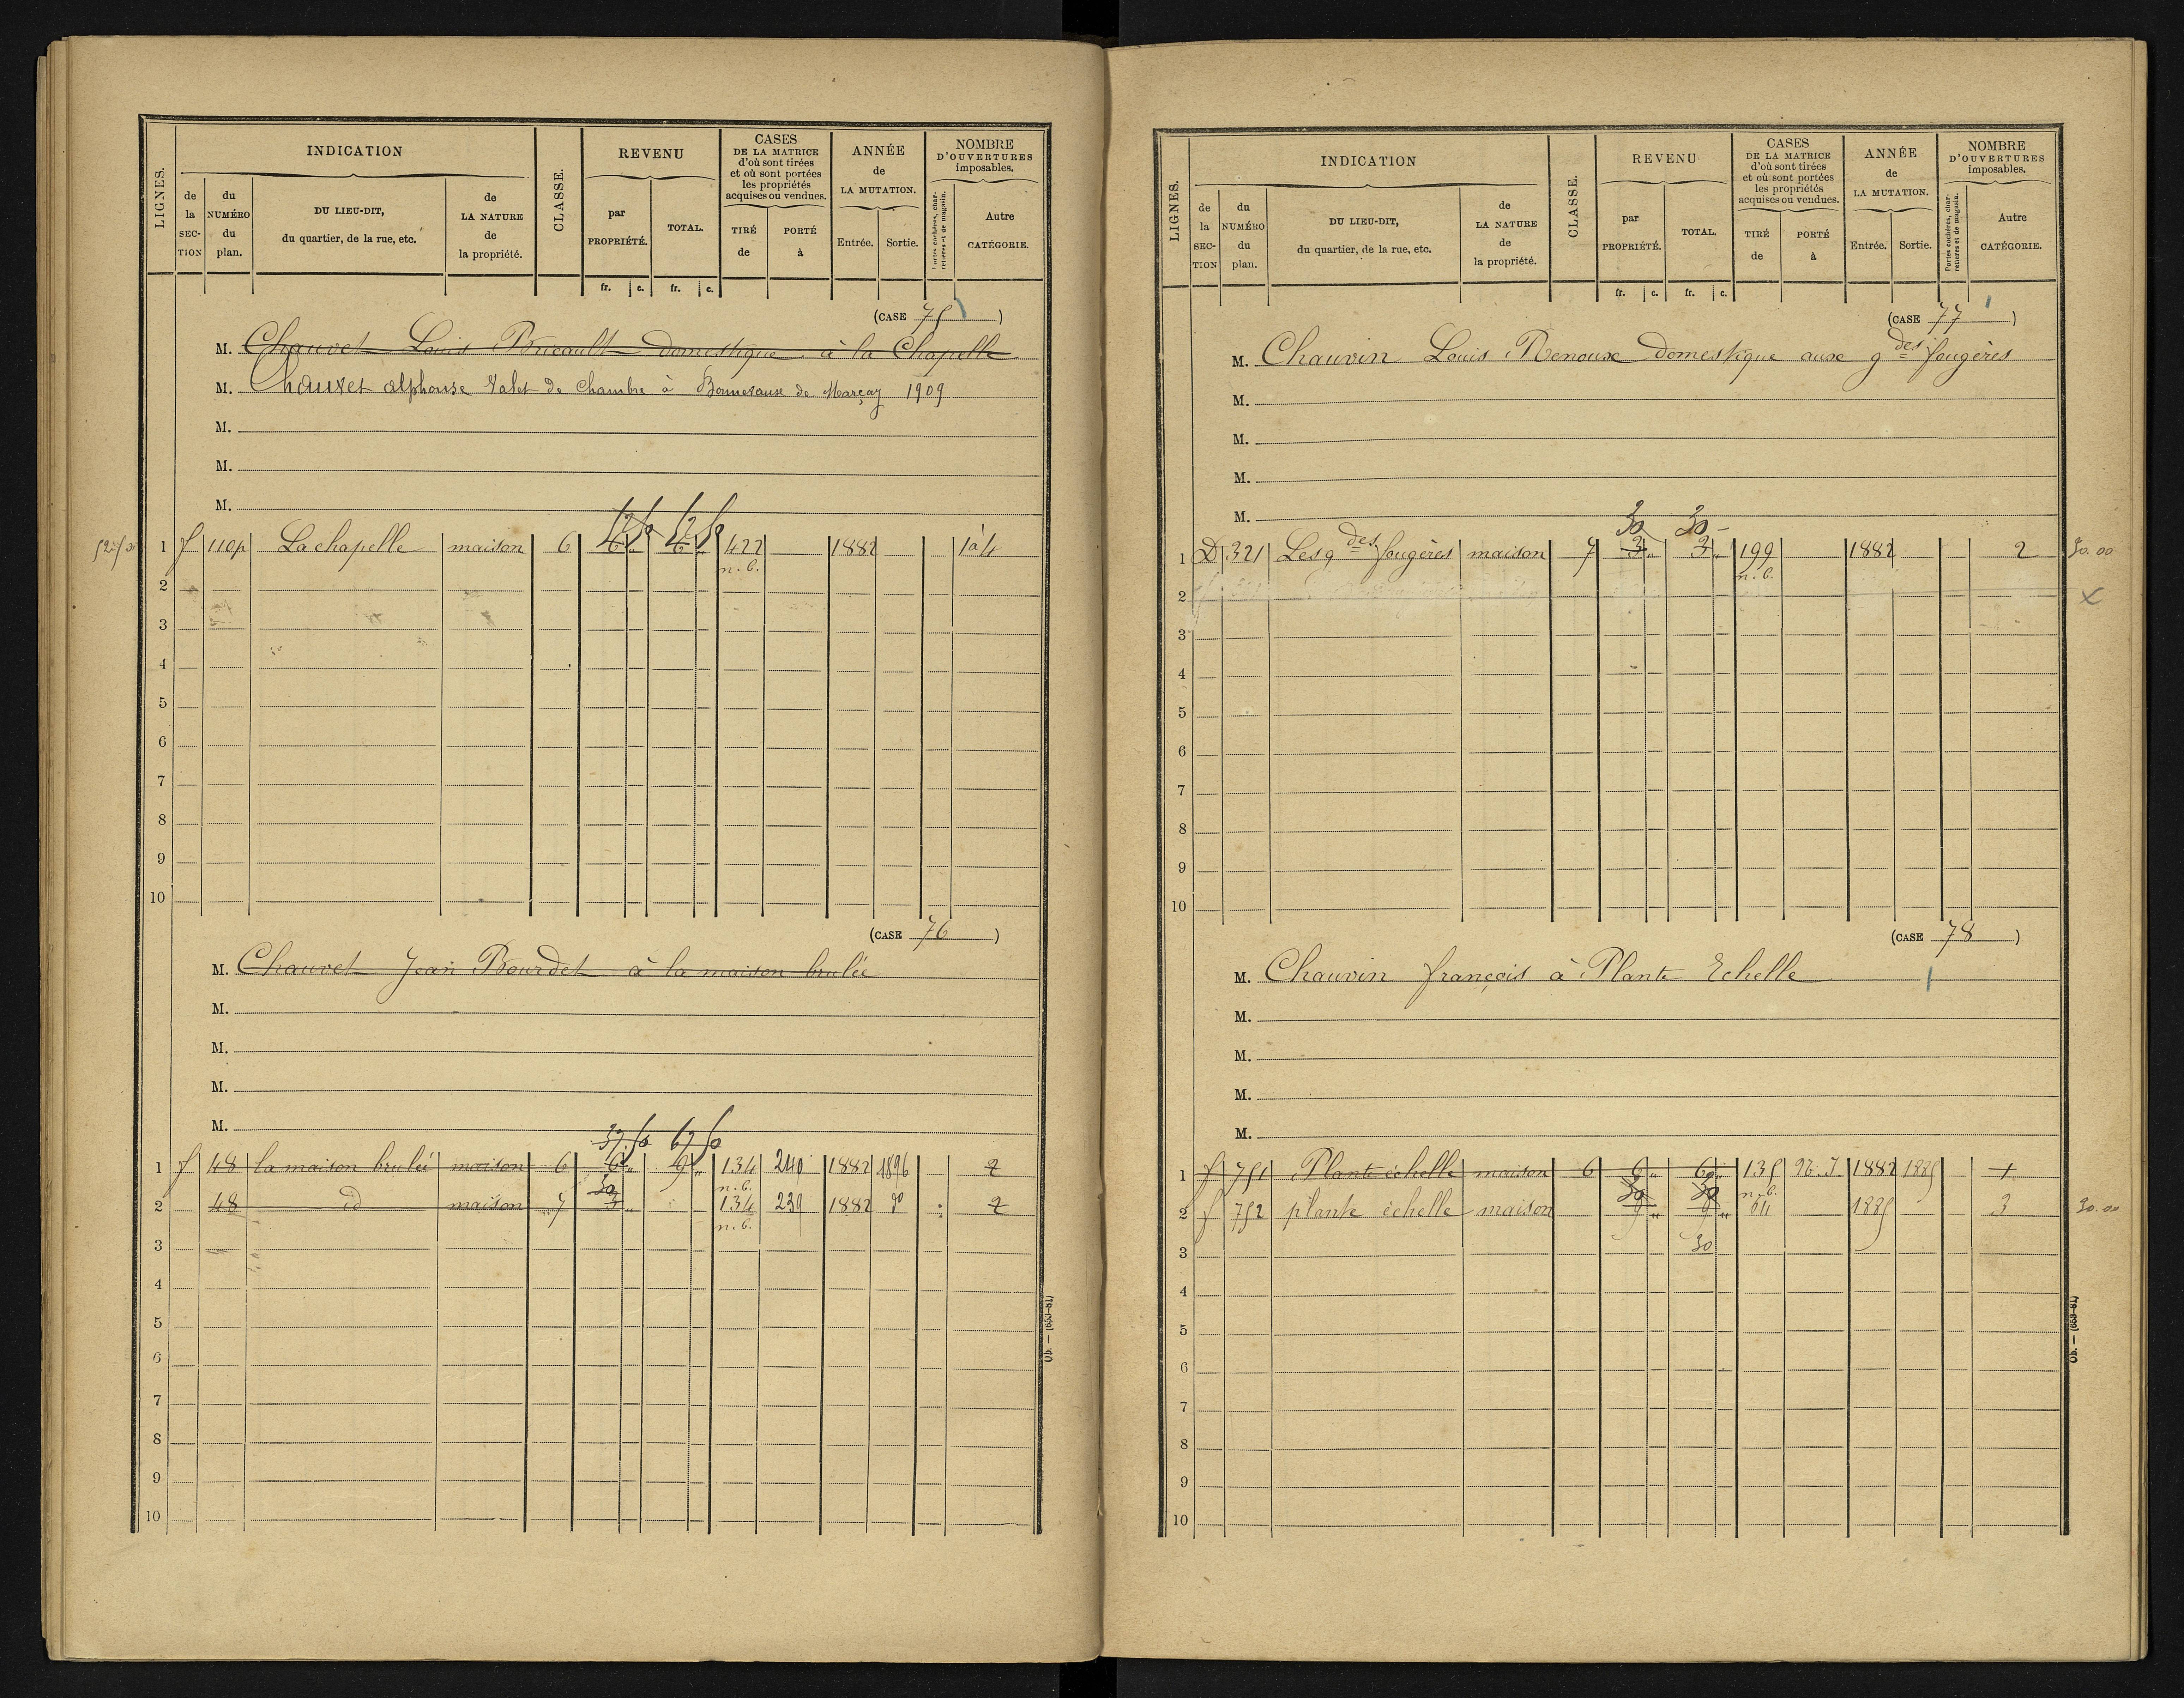 LIGNES.
INDICATION
de la SECTION
du NUMÉRO du plan.
DU LIEU-DIT, du quartier, de la rue, etc.
de LA NATURE de la propriété.
CLASSE.
REVENU
par PROPRIÉTÉ.
TOTAL.
fr. c. fr. c.
CASES DE LA MATRICE d'où sont tirées et où sont portées les propriétés acquises ou vendues.
TIRÉ de
PORTÉ à
ANNÉE de LA MUTATION.
Entrée. Sortie.
NOMBRE D'OUVERTURES imposables.
Portes cochères, charretières et de magasin.
Autre CATÉGORIE.
(CASE 75)
M. Chauvet Louis Bricault domestique à la Chapelle
M. Chauvet alphonse Valet de Chambre à Bonnevaux de Marçay 1909
M.
M.
M.
52 50 52 50
1 f 110p La chapelle maison 6 6 " 6 " 422 1882 1à4
n.b.
2
3
4
5
6
7
8
9
10
(CASE 76)
M. Chauvet Jean Bourdet à la maison brulée
M.
M.
M.
M.
37.50 67 50
1 f 48 la maison brulée maison 6 6 " 9 " 134 240 1882 1896 2
n.b.
30
2 48 id maison 7 3 " 134 239 1882 do 2
n.b.
3
4
5
6
7
8
9
10
LIGNES.
INDICATION
de la SECTION
du NUMÉRO du plan.
DU LIEU-DIT, du quartier, de la rue, etc.
de LA NATURE de la propriété.
CLASSE.
REVENU
par PROPRIÉTÉ.
TOTAL.
fr. c. fr. c.
CASES DE LA MATRICE d'où sont tirées et où sont portées les propriétés acquises ou vendues.
TIRÉ de
PORTÉ à
ANNÉE de LA MUTATION.
Entrée. Sortie.
NOMBRE D'OUVERTURES imposables.
Portes cochères, charretières et de magasin.
Autre CATÉGORIE.
(CASE 77)
M. Chauvin Louis Renoux domestique aux gdes fougères
M.
M.
M.
M.
30 30 -
1 D 321 Les gdes fougères maison 7 3 " 3 " 199 1882 2 30.00
n.b.
2 x
3
4
5
6
7
8
9
10
(CASE 78)
M. Chauvin françois à Plante Echelle
M.
M.
M.
M.
1 f 751 Plante échelle maison 6 6 " 6 " 135 1882 1885 1
30 30 n.b.
2 f 752 plante échelle maison 9 " 9 " 64 1885 3 30.00
3 30
4
5
6
7
8
9
10
Ob. — (658-81)